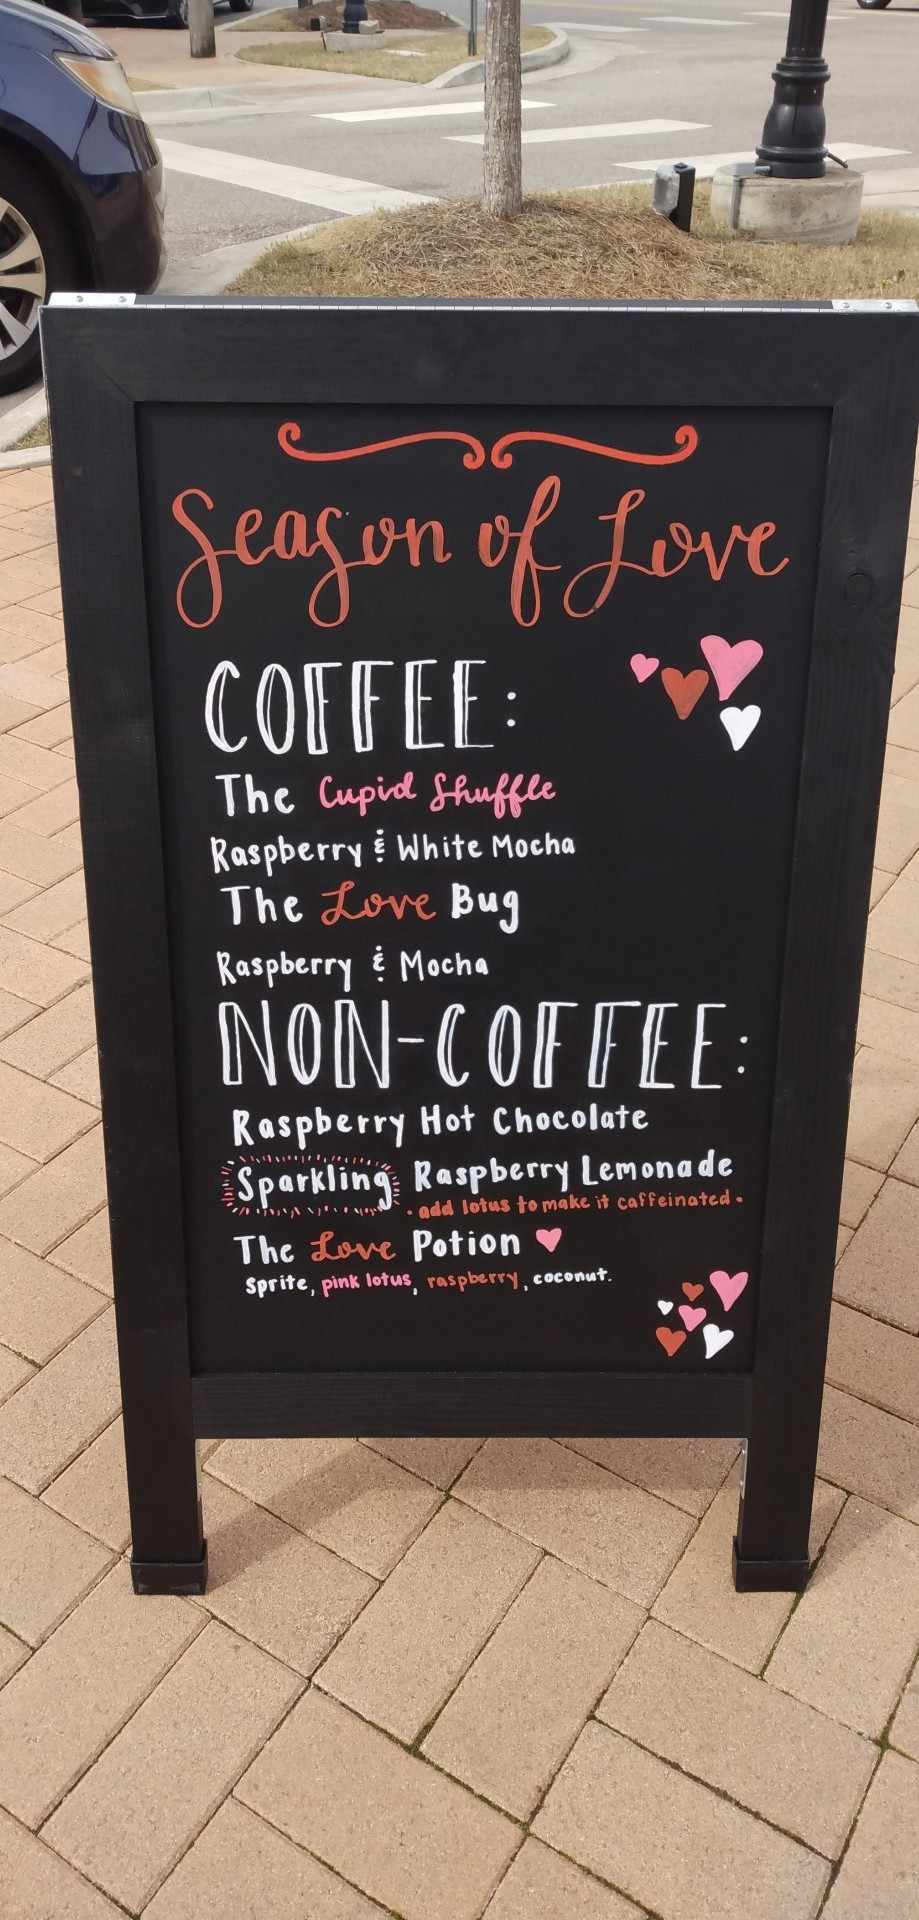 Season of Love
COFFEE:
The Cupid Shuffle
Raspberry & White Mocha
The Love Bug
Raspberry & Mocha
NON-COFFEE:
Raspberry Hot Chocolate
Sparkling Raspberry Lemonade
• add lotus to make it caffeinated •
The Love Potion
Sprite, pink lotus, raspberry, coconut.